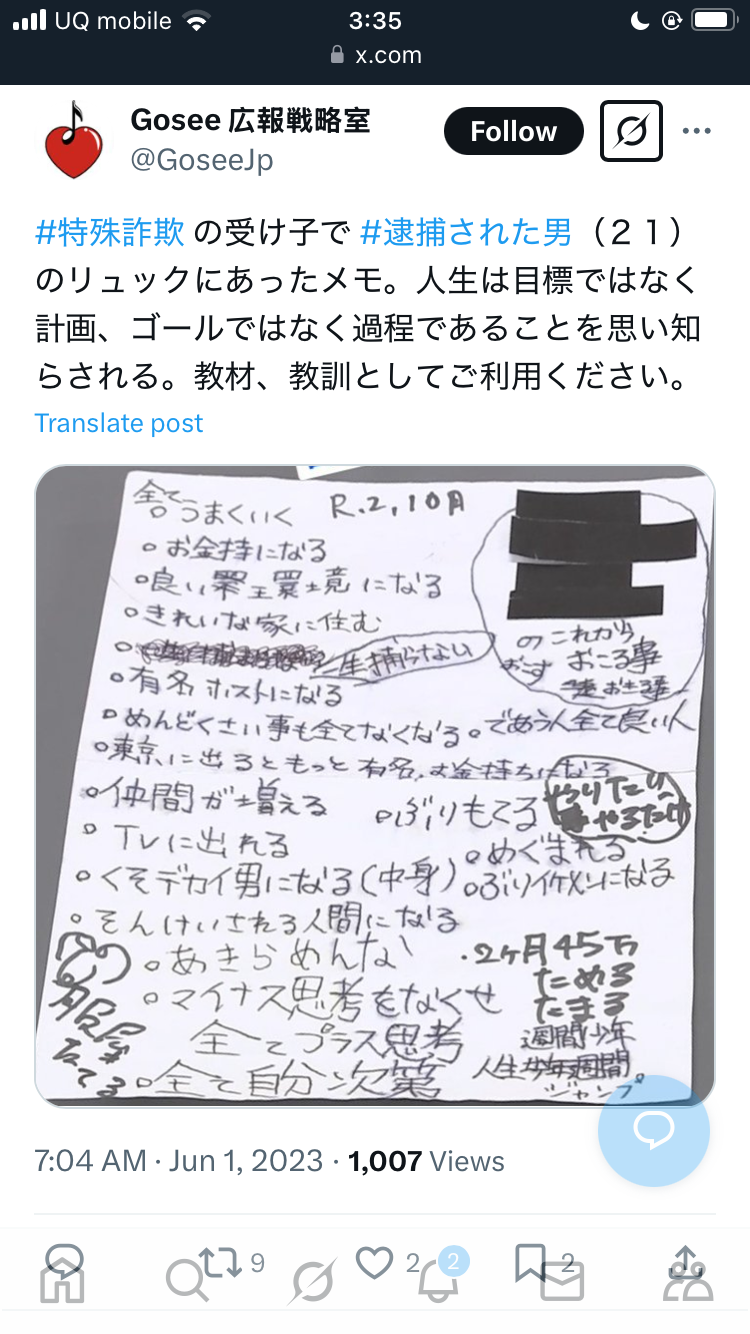 UQ mobile 3:35
x.com
Gosee 広報戦略室
@GoseeJp
Follow
#特殊詐欺 の受け子で #逮捕された男（２１）
のリュックにあったメモ。人生は目標ではなく
計画、ゴールではなく過程であることを思い知
らされる。教材、教訓としてご利用ください。
Translate post
全てうまくいく R.2,10月
。お金持になる
。良い環境になる
。きれいな家に住む
。一生捕らない
のこれから
おこる事
。有名ホストになる
。めんどくさい事も全てなくなる。であう人全て良い人
。東京に出るともっと有名、お金持ちになる
。仲間が増える
。ぶりもてる
やりたい
やるだけ
。TVに出れる
。めぐまれる
。くそデカイ男になる(中身)
。ぶりイケメンになる
。そんけいされる人間になる
。あきらめんな
・2ヶ月45万
ためる
たまる
。マイナス思考をなくせ
全てプラス思考
週間少年
人生週間
ジャンプ。
。全て自分次第
7:04 AM · Jun 1, 2023 · 1,007 Views
9
2
2
2